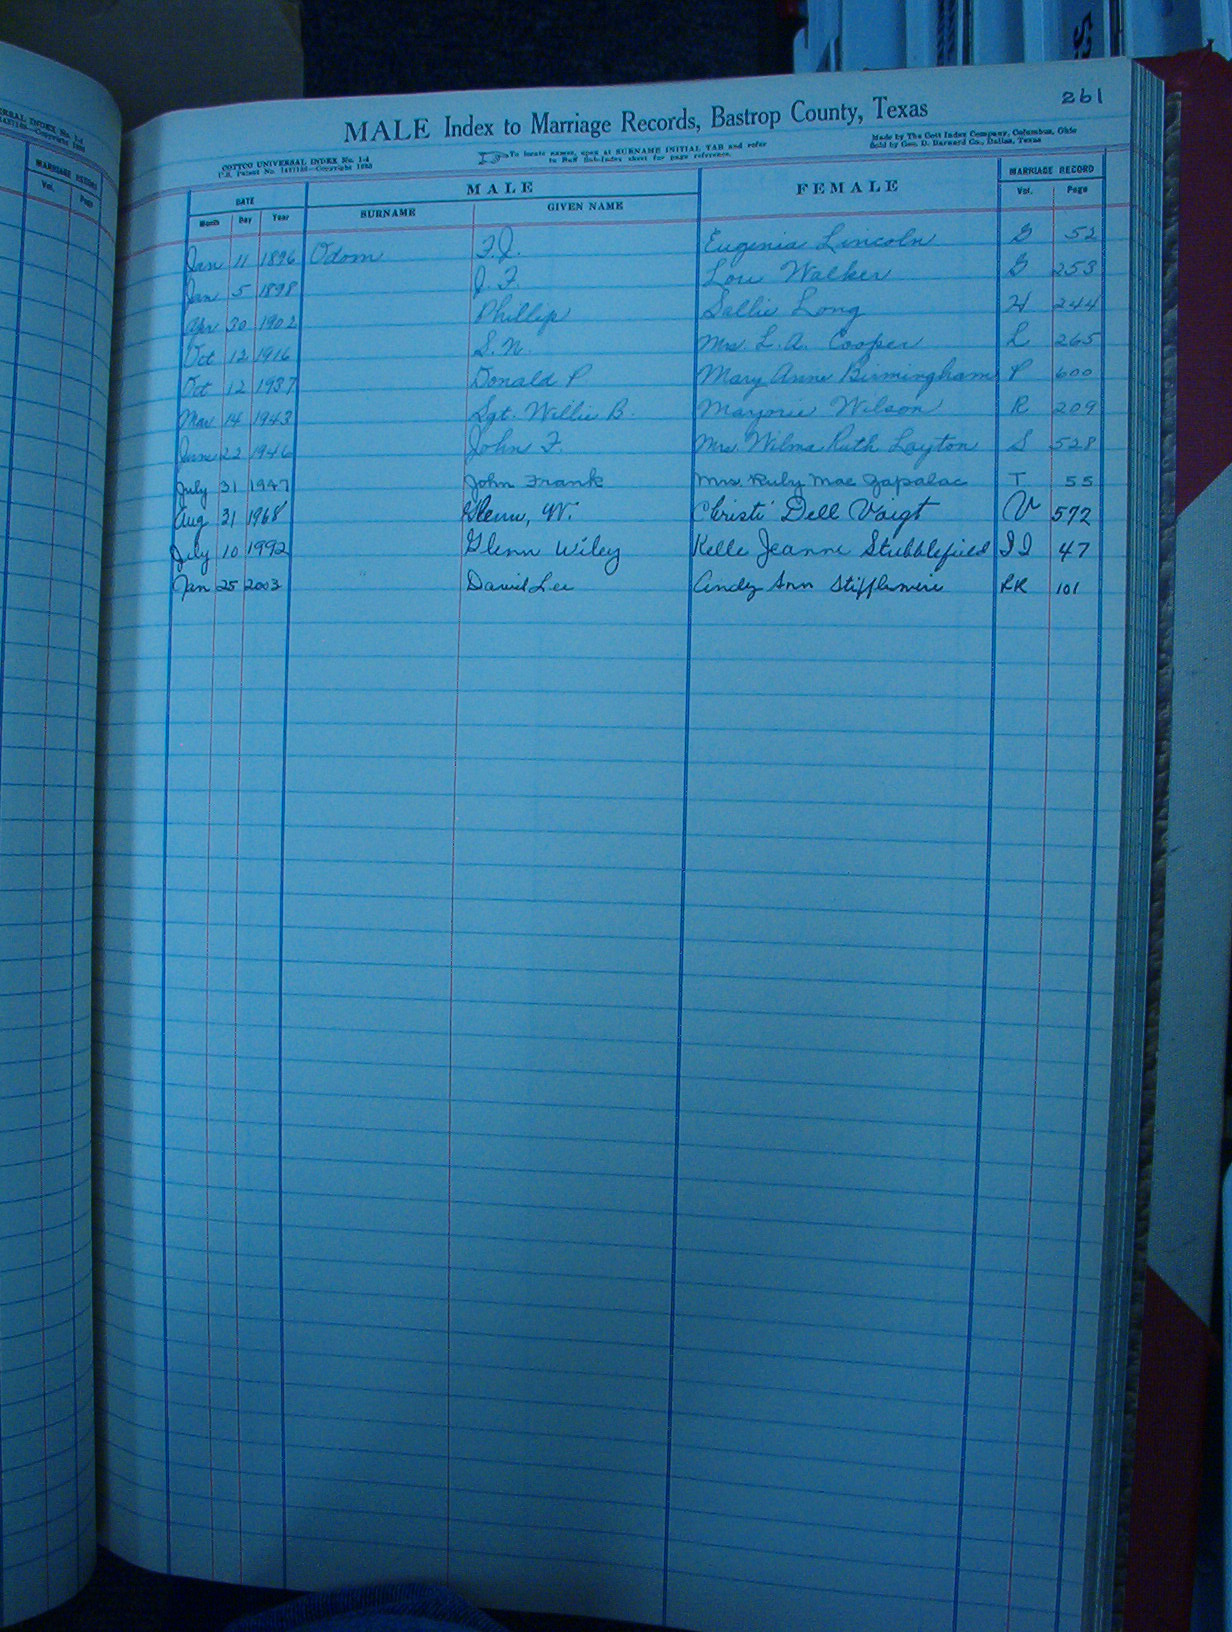 261
MALE Index to Marriage Records, Bastrop County, Texas
COTTCO UNIVERSAL INDEX No. 1-4
To locate names, open at SURNAME INITIAL TAB and refer
Made by The Cott Index Company, Columbus, Ohio
Sold by Geo. D. Barnard Co., Dallas, Texas
MARRIAGE RECORD
Vol. Page
DATE MALE FEMALE MARRIAGE RECORD
Month Day Year SURNAME GIVEN NAME Vol. Page
Jan 11 1896 Odom F.J. Eugenia Lincoln G 52
Jan 5 1898 J.F. Lou Walker G 253
Apr 30 1902 Phillip Sallie Long H 244
Oct 12 1916 S.N. Mrs. L.A. Cooper L 265
Oct 12 1937 Donald P. Mary Anne Birmingham P 600
Mar 14 1943 Sgt. Willie B. Marjorie Wilson R 209
June 22 1946 John F. Mrs. Wilma Ruth Layton S 528
July 31 1947 John Frank Mrs. Ruby Mae Zapalac T 55
Aug 31 1968 Glenn, W. Christi Dell Voigt V 572
July 10 1992 Glenn Wiley Kelle Jeanne Stubblefield II 47
Jan 25 2003 David Lee Andy Ann Stifflemire RR 101